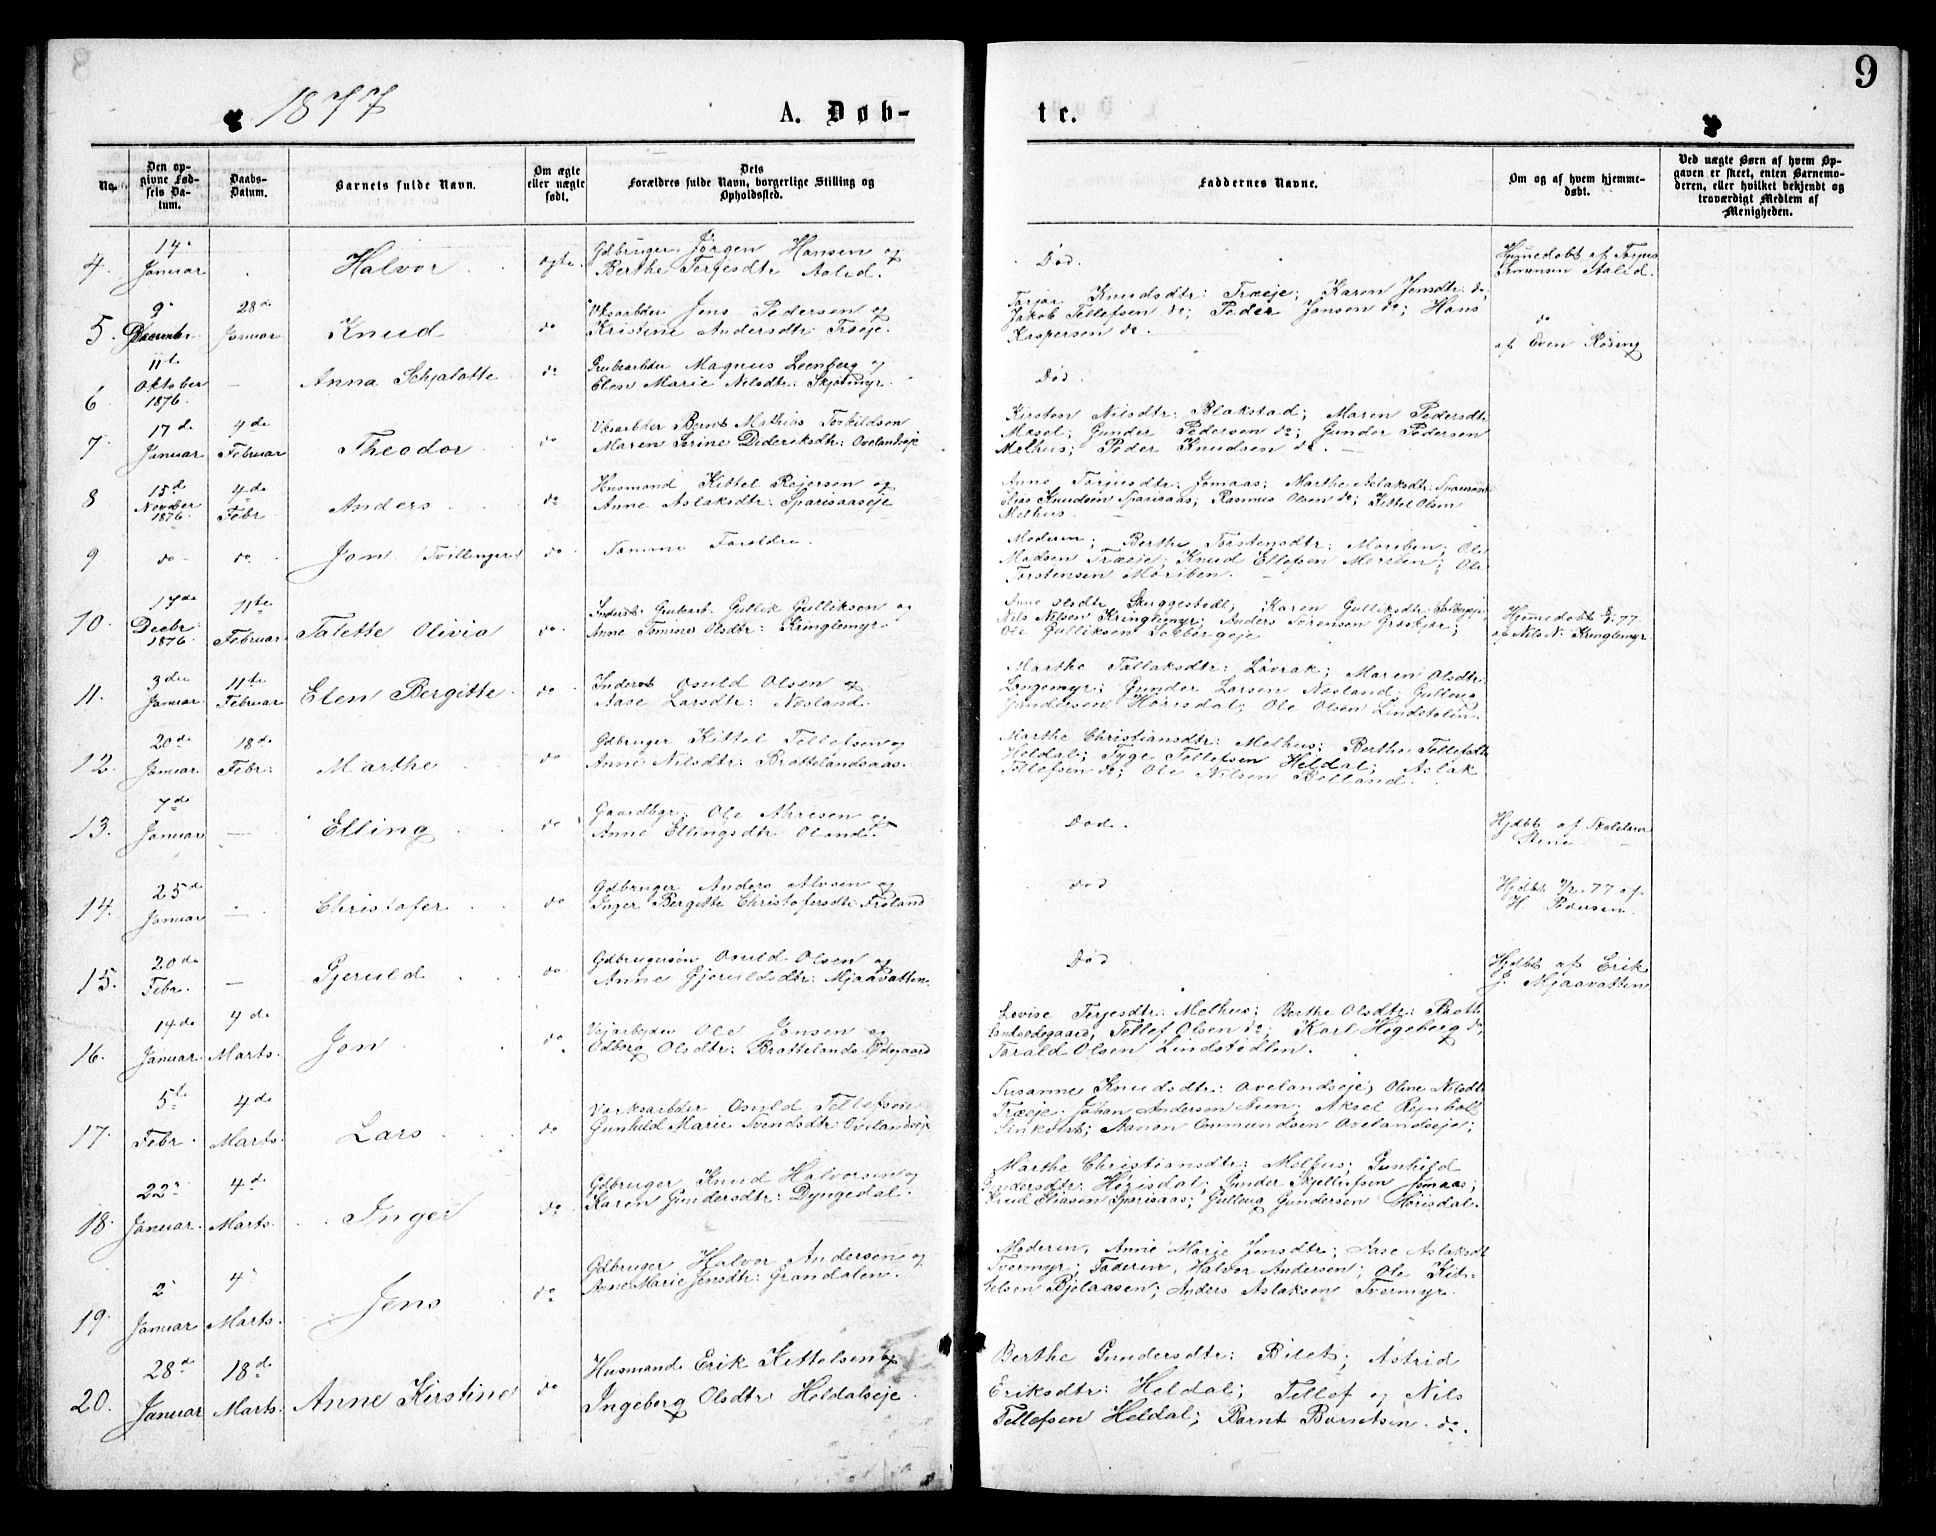 9
1877
A. Døb-
te.
No.
Den op-
givne Fød-
sels Da-
tum.
Daabs-
Datum.
Barnets fulde Navn.
Om ægte
eller uægte
født.
Dets
Forældres fulde Navn, borgerlige Stilling og
Opholdssted.
Faddernes Navne.
Om og af hvem hjemme-
døbt.
Ved uægte Børn af hvem Op-
gaven er skeet, enten Barnemo-
deren, eller hvilket bekjendt og
troværdigt Medlem af
Menigheden.
4. 14 Januar Halvor ægte
Gdbruger Jørgen Hansen og
Berthe Terjesdtr
Død.
Hjemmedøbt af
5. 9 28de Januar Knud do
Jens Pedersen og
Kristine Andersdtr: Træje.
Knudsdtr: Træje; Karen Jensdtr: do;
Jakob Tellefsen do; Peder Jensen do; Hans
Kaspersen do.
do
af Even Røsing
6. 11te Oktober 1876. — Anna do
Grubearbdr Magnus Leenberg og
Elen Marie Nilsdtr:
Død.
7. 17de Januar 4de Februar Theodor do
Bernt Mathias Torkildsen
Maren Serine Dideriksdtr: Ovelandseje
Kirsten Nilsdtr: Blakstad; Maren Pedersdtr
Gunder Pedersen do; Gunder Pedersen
Melhus; Peder Knudsen do. —
8 15de November 1876 4de Febr. Anders do
Husmand Kittel Rejersen og
Anne Aslaksdtr: Sparisaaseje
Anne Jomaas; Marthe Aslaksdtr:
Elias Knudsen Sparisaas; Rasmus Olsen do; Kittel Olsen
Melhus.
9 do do Jon (Tvillinger) do
Samme Foreldre.
Moderen; Berthe Torstensdtr: Moriben; Ole
Madsen Træeje; Knud Ellefsen Ole
Torstensen Moriben. —
10. 17de Decbr. 1876 11te Februar Talette Olivia do
Inderst Grubearb. Gullik Gulliksen og
Anne Tomine Olsdtr: Kringlemyr
Anne Olsdtr Skuggestedt; Karen Gulliksdtr:
Nils Nilsen Kringlemyr; Anders Sørensen
Ole Gulliksen
Hjemmedøbt
af Nils N. Kringlemyr
11. 3die Januar 11te Februar Elen Bergitte do
Inderst Osuld Olsen og
Aase Larsdtr: Næsland.
Marthe Tellaksdtr: Løvrak; Maren Olsdtr:
Longemyr; Gunder Larsen Næsland; Gulleug
Gundersen Hørisdal; Ole Olsen Lindstølen.
12. 20de Januar 18de Febr: Marthe do
Gdbruger Kittel Tellefsen og
Anne Nilsdtr: Brattelandsaas.
Marthe Christiansdtr: Melhus; Berthe Tellefsdtr
Heldal; Tyge Tellefsen Heldal; Aslak
Tellefsen do; Ole Nilsen
13. 7de Januar — Elling do
Gaardbgr: Ole og
Anne Ellingsdtr
Død.
Hjdbt af Skolelærer
Stene
14. 25de Januar — Christofer do
Gdbruger Anders Alvsen og
Inger Bergitte Christofersdtr: Frøland
død
Hjdbt 77 af
H.
15. 20de Febr. — Gjeruld do
Gdbrugersøn Osuld Olsen og
Anne Gjeruldsdtr: Mjaavatten.
Død
Hjdbt af Erik
G. Mjaavatten
16. 14de Januar 4de Marts. Jon do
Vejarbejder Ole Jonsen og
Udborg Olsdtr: Brattelands Ødegaard
Lovise Terjesdtr: Melhus; Berthe Olsdtr: Bratte-
landsødegaard, Tellef Olsen do; Karl Hegeberg do,
Torald Olsen Lindstødlen.
17. 5te Febr. 4de Marts. Lars do
Værksarbdr Osuld Tellefsen
Gunhild Marie Svendsdtr: Ovelandseje
Susanne Knudsdtr: Ovelandseje; Oline Nilsdtr
Træeje; Johan Andersen Aksel Rejnholt
Aanon Omundsen Ovelandseje;
18. 22 Januar. 4de Marts. Inger do
Gdbruger Knud Halvorsen og
Karen Gundersdtr: Dyngedal.
Marthe Christiansdtr: Melhus; Gunhild
Gundersdtr: Hørisdal; Gunder Jomaas;
Knud Eliasen Sparisaas; Gulleug Gundersen Hørisdal.
19. 2 Januar 4 Marts. Jens do
Gdbruger Halvor Andersen og
Anne Marie Jensdtr: Grandalen.
Moderen, Anne Marie Jensdtr; Aase Aslaksdtr
Tvermyr; Faderen, Halvor Andersen; Ole Kit-
telsen Bjelaasen; Anders Aslaksen Tvermyr.
20. 28de Januar 18de Marts. Anne Kirstine do
Husmand Erik Kittelsen og
Ingeborg Olsdtr: Heldalseje.
Berthe Gundersdtr: Bilet; Astrid
Eriksdtr: Heldal; Tellef og Nils
Tellefsen Heldal; Bernt Berntsen do.